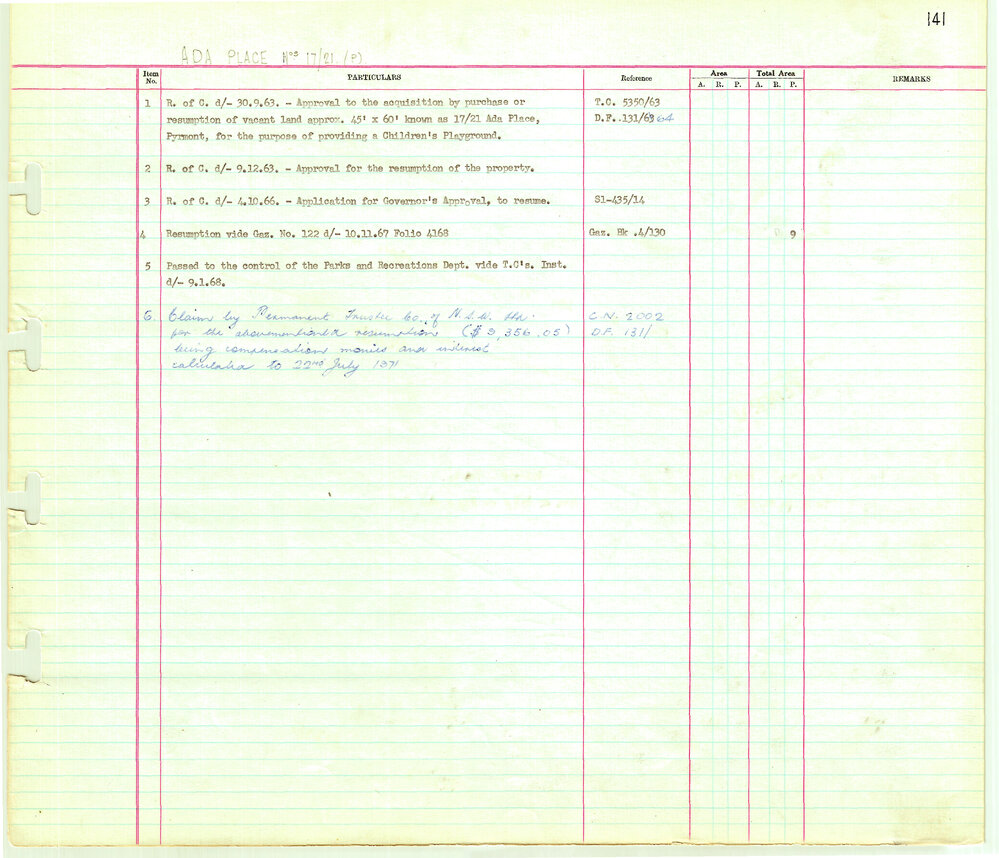 141
ADA PLACE Nos 17/21. (P)
Item No. PARTICULARS Reference Area Total Area REMARKS
A. R. P. A. R. P.
1 R. of C. d/- 30.9.63. - Approval to the acquisition by purchase or T.C. 5350/63
resumption of vacant land approx. 45' x 60' known as 17/21 Ada Place, D.F. .131/63 64
Pyrmont, for the purpose of providing a Children's Playground.
2 R. of C. d/- 9.12.63. - Approval for the resumption of the property.
3 R. of C. d/- 4.10.66. - Application for Governor's Approval, to resume. S1-435/14
4 Resumption vide Gaz. No. 122 d/- 10.11.67 Folio 4168 Gaz. Bk .4/130 9
5 Passed to the control of the Parks and Recreations Dept. vide T.C's. Inst.
d/- 9.1.68.
6. Claim by Permanent Trustee Co. of N.S.W. Ltd. C.N. 2002
for the abovementioned resumption ($3,356.05) D.F. 131/
being compensation monies and interest
calculated to 22nd July 1971